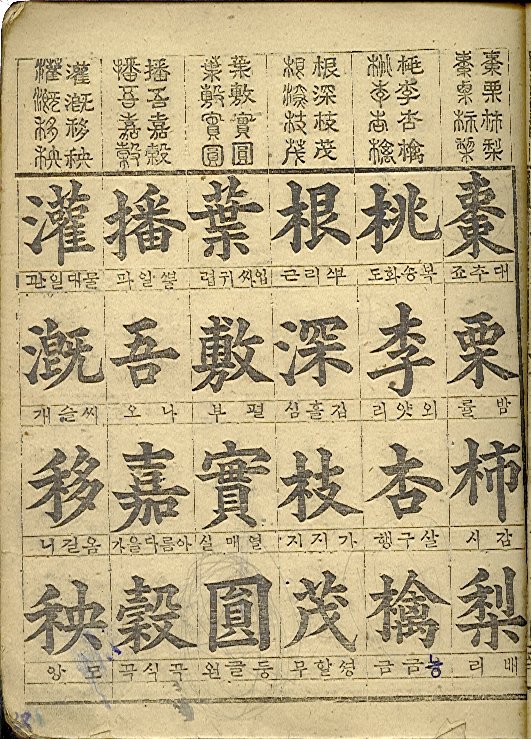 棗栗柿梨
棗栗柿梨
桃李杏檎
桃李杏檎
根深枝茂
根深枝茂
葉敷實圓
葉敷實圓
播吾嘉穀
播吾嘉穀
灌漑移秧
灌漑移秧
棗
대추죠
栗
밤률
柿
감시
梨
배리
桃
복숑화도
李
외얏리
杏
살구행
檎
능금금
根
뿌리근
深
깁흘심
枝
가지지
茂
셩할무
葉
입싸귀렵
敷
펼부
實
열매실
圓
둥글원
播
파
吾
나오
嘉
아름다을가
穀
곡식곡
灌
물대일관
漑
씨슬개
移
옴길니
秧
모앙